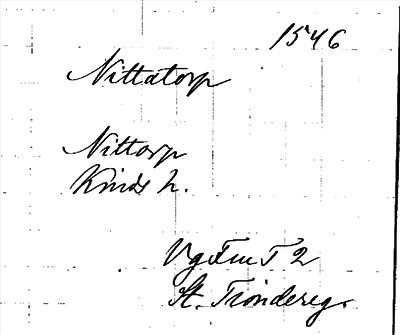 1546
Nittatorp
Nittorp
Kinds h.
Vg Fm T 2
St. Tiondereg.